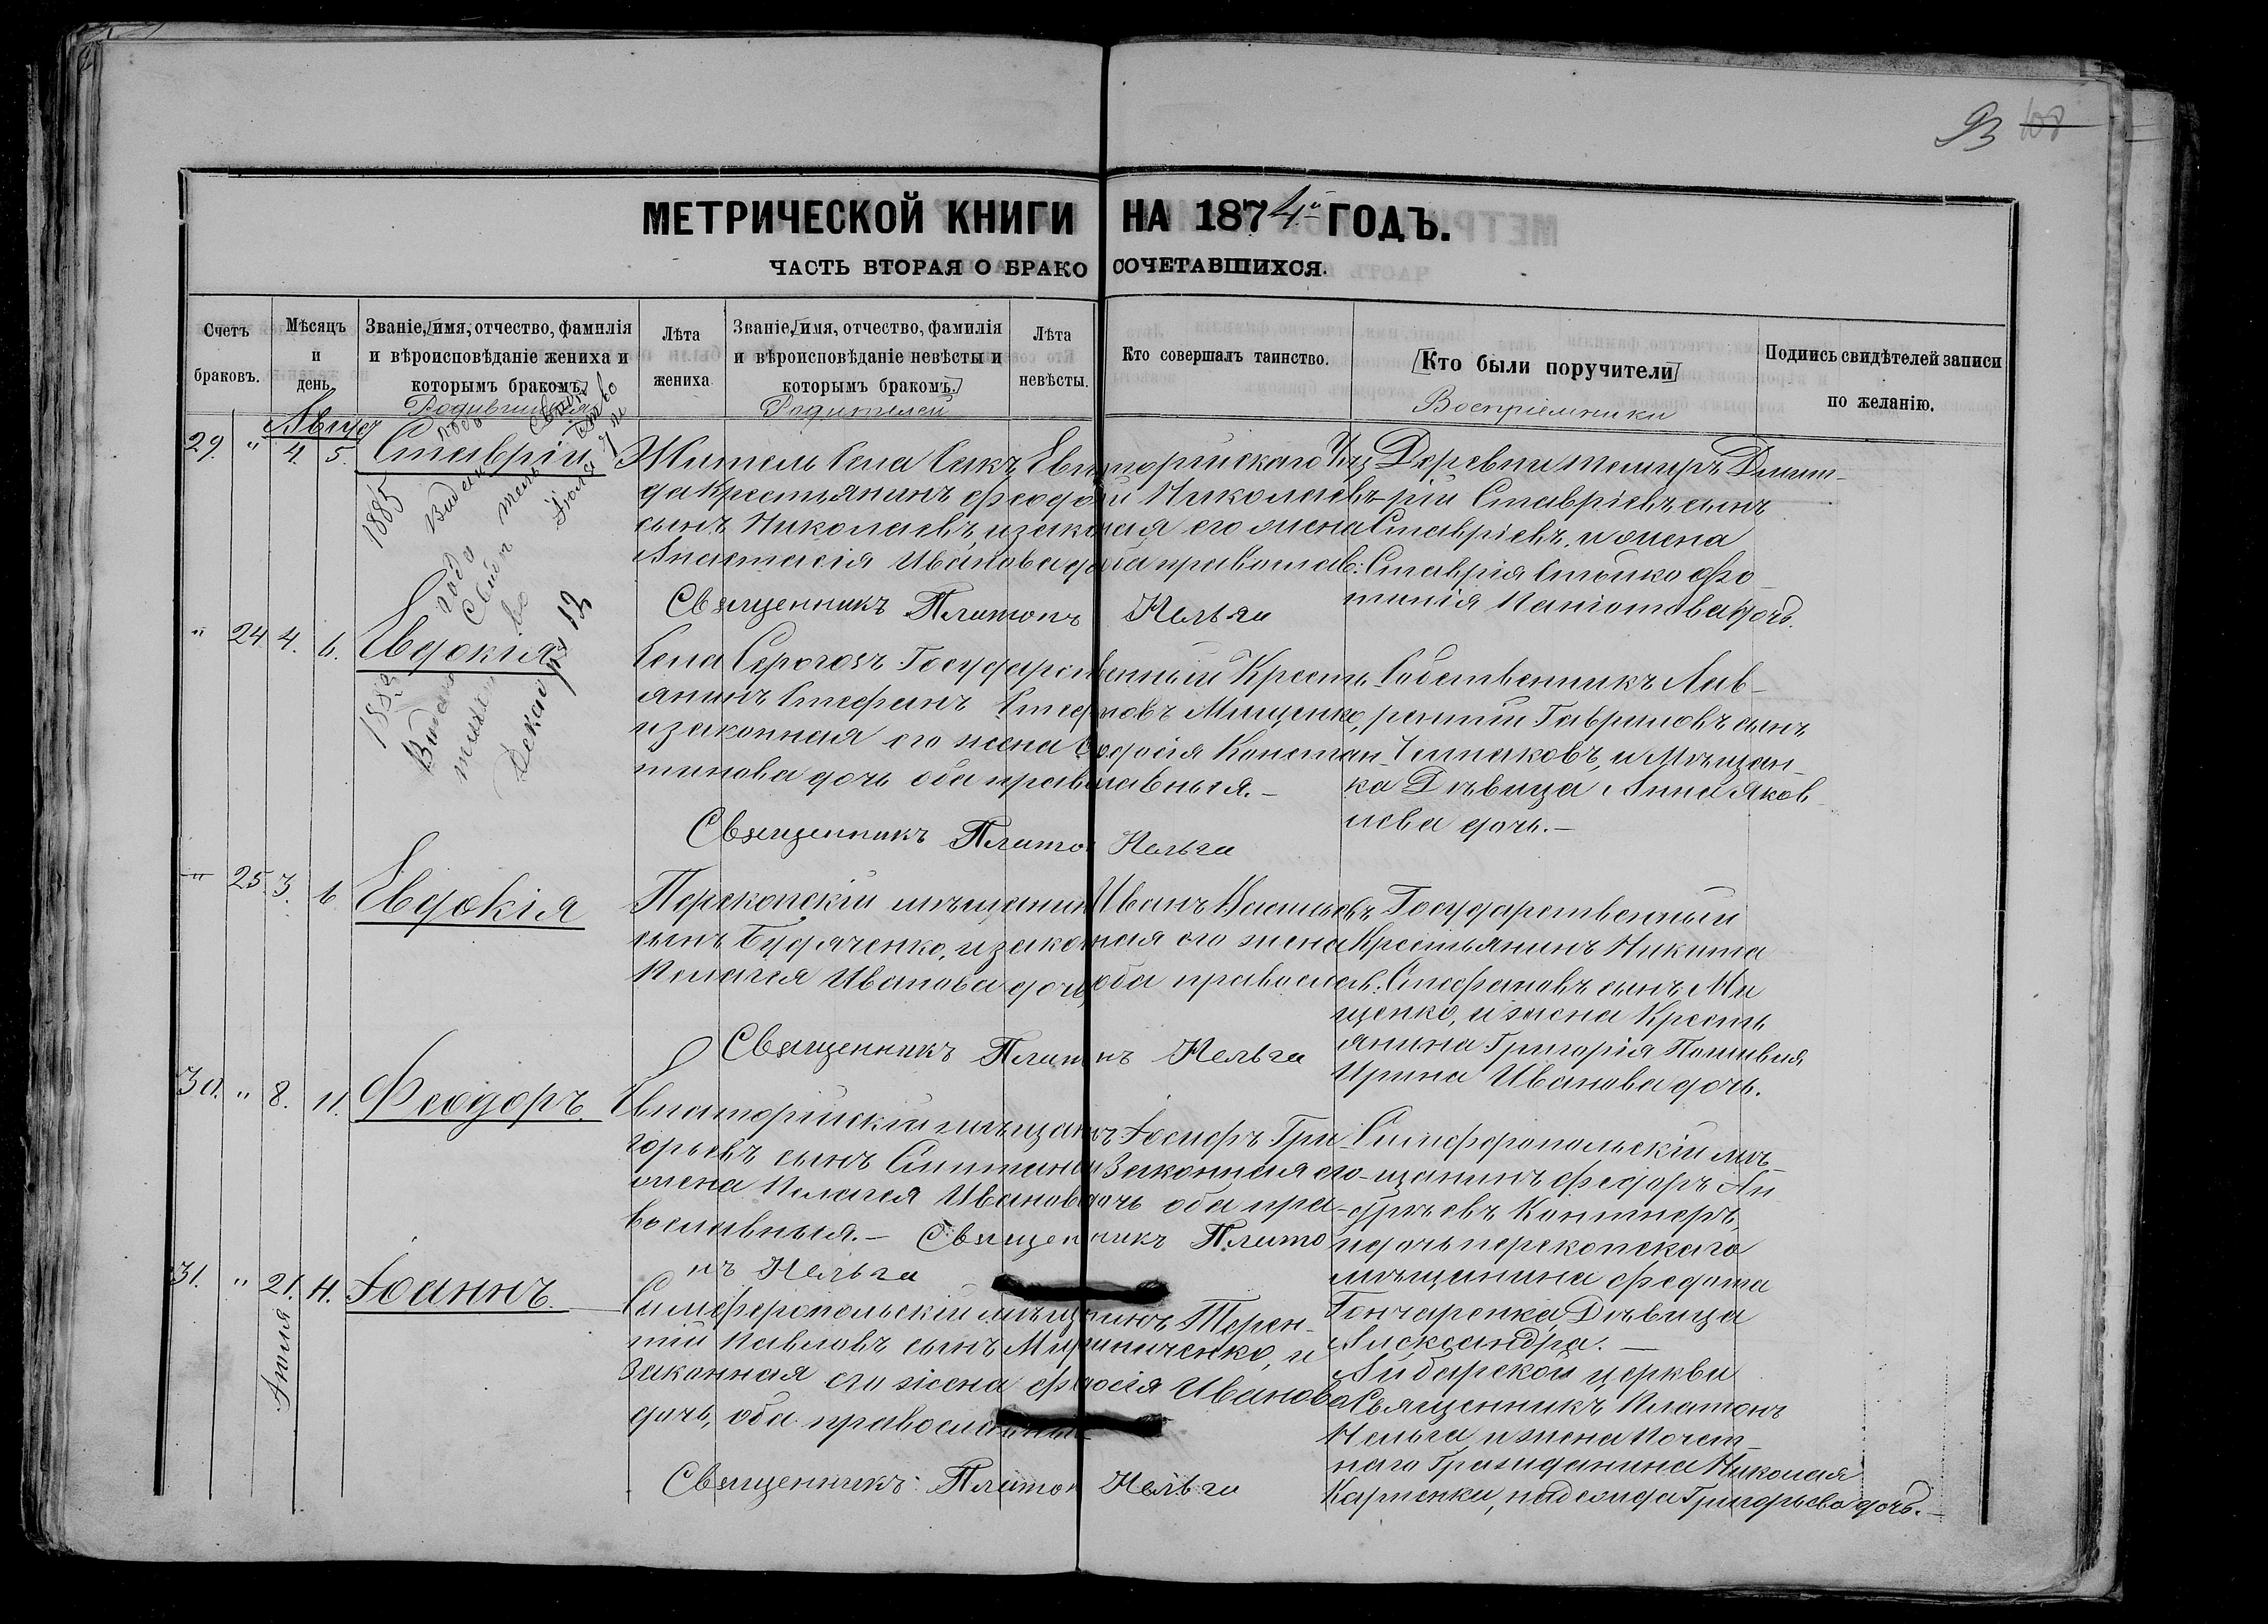 93 108
МЕТРИЧЕСКОЙ КНИГИ НА 1874й ГОДЪ.
ЧАСТЬ ВТОРАЯ О БРАКОСОЧЕТАВШИХСЯ.
Счетъ браковъ.
Мѣсяцъ и день.
Званіе, [имя, отчество, фамилія и вѣроисповѣданіе жениха и которымъ бракомъ.]
Родившихся
Лѣта жениха
Званіе, [имя, отчество, фамилія и вѣроисповѣданіе невѣсты и которымъ бракомъ.]
Родителей
Лѣта невѣсты.
Кто совершалъ таинство.
[Кто были поручители]
Восприемники
Подпись свидѣтелей записи по желанію.
Август
29. " 4. 5. Ставрій
1885 года
Июля
Житель Села Сакъ, Евпаторійскаго Уѣз
да Крестьянинъ Феодосій Николаевъ
сынъ Николаевъ, и законная его жена
Анастасія Иванова дочь оба православ:
Священникъ Платонъ Нельга
Деревни Темиръ Димит-
рій Ставріевъ сынъ
Ставріевъ, и жена
Ставрія Стойко Фо-
тинія Панютова дочь.
" 24 4. 6. Евдокія
Декабря 12
Села Серогозъ Государственный Кресть
янинъ Стефанъ Стефановъ Мищенко,
и законная его жена Феодосія Констан-
тинова дочь оба православныя.-
Священникъ Платон Нельга
Собственникъ Лав-
рентий Гавриловъ сынъ
Чепмаковъ, и Мѣщан-
ка Дѣвица Анна Яков
лева дочь.-
" 25. 3. 6 Евдокія
Перекопскій мѣщанин Иванъ Васильевъ
сынъ Бударченко, и законная его жена
Пелагея Иванова дочь, оба православ.
Священникъ Платонъ Нельга
Государственный
Крестьянинъ Никита
Стефановъ сынъ Ми
щенко, и жена Кресть
янина Григорія Поливия
Ирина Иванова дочь.
30. " 8. 11. Феодоръ.
Евпаторійскій мѣщанинъ Іосифъ Гри-
горьевъ сынъ и Законная его
жена Пелагея Иванова дочь оба пра-
вославныя.- Священникъ Плато
нъ Нельга
Симферопольскій мѣ-
щанинъ Федоръ Ан
дреевъ
и дочь перекопскаго
мѣщанина Федота
Гончаренка, Дѣвица
Александра.-
31. " 21. Н. Іоаннъ.
Июля
Симферопольскій мѣщанинъ Терен-
тій Павловъ сынъ Мирниченко, и
Законная его жена Феодосія Иванова
дочь, оба православныя
Священникъ: Платон Нельга
Айбарской церкви
Священникъ Платонъ
Нельга и жена Почет-
наго Гражданина Николая
Карпенки, Надежда Григорьева дочь.-